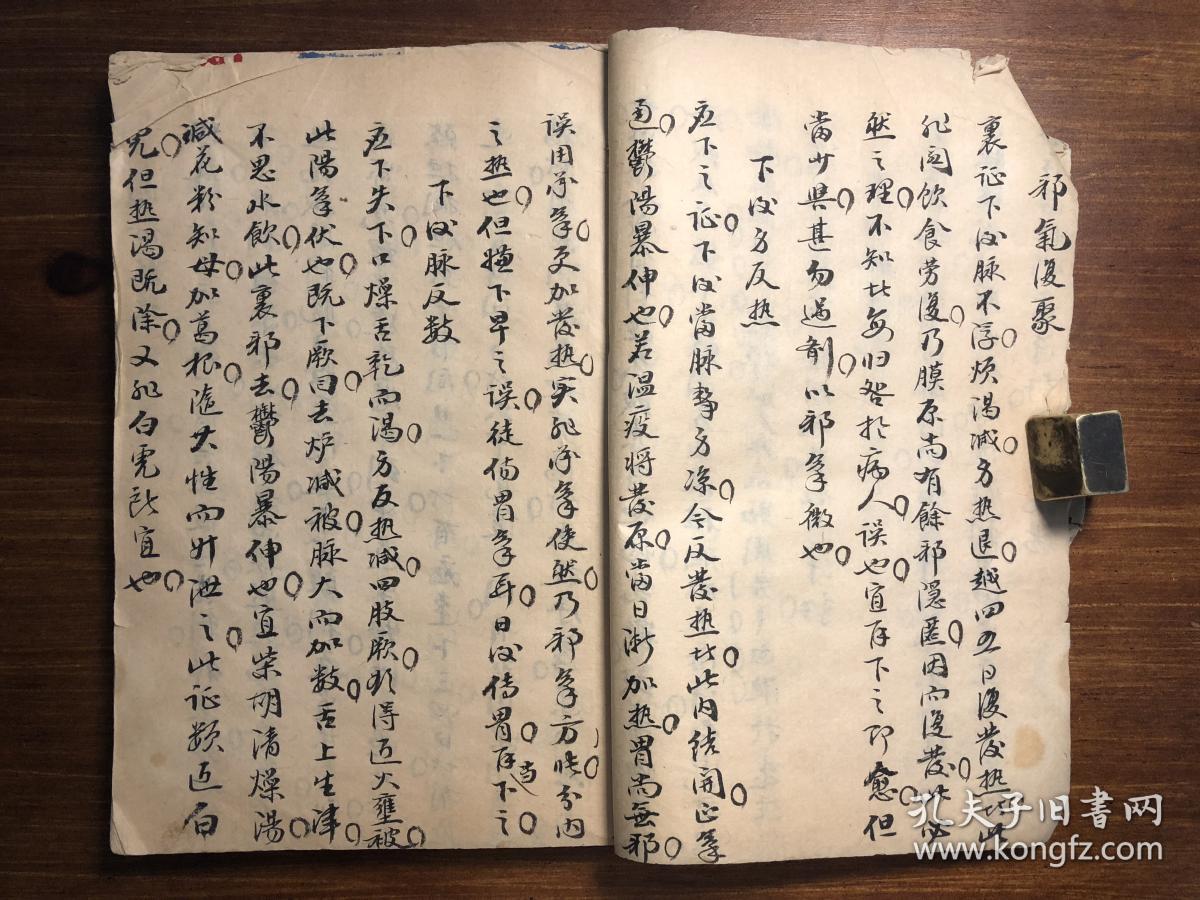 邪氣復聚
裏证下後脉不浮烦渴减身热退越四五日復發热此
非関飲食劳復乃膜原尚有餘邪隱匿因而復發此必
然之理不知此每归咎於病人误也宜再下之即愈但
當少與甚勿過剤以邪氣微也
下後身反热
应下之证下後當脉静身凉今反發热此内结開正氣
通鬱陽暴伸也若温疫将發原當日漸加热胃尚無邪
误用承氣更加發热实非承氣使然乃邪氣方㫸分内
之热也但嫌下早之误徒傷胃氣耳日後傳胃再當下之
下後脉反数
应下失下口燥舌乾而渴身反热减四肢厥欲得近火壅被
此陽氣伏也既下厥回去炉减被脉大而加数舌上生津
不思水飲此裏邪去鬱陽暴伸也宜柴胡清燥湯
减花粉知母加葛根隨其性而升泄之此证類近白
虎但热渴既除又非白虎所宜也
孔夫子旧书网
www.kongfz.com